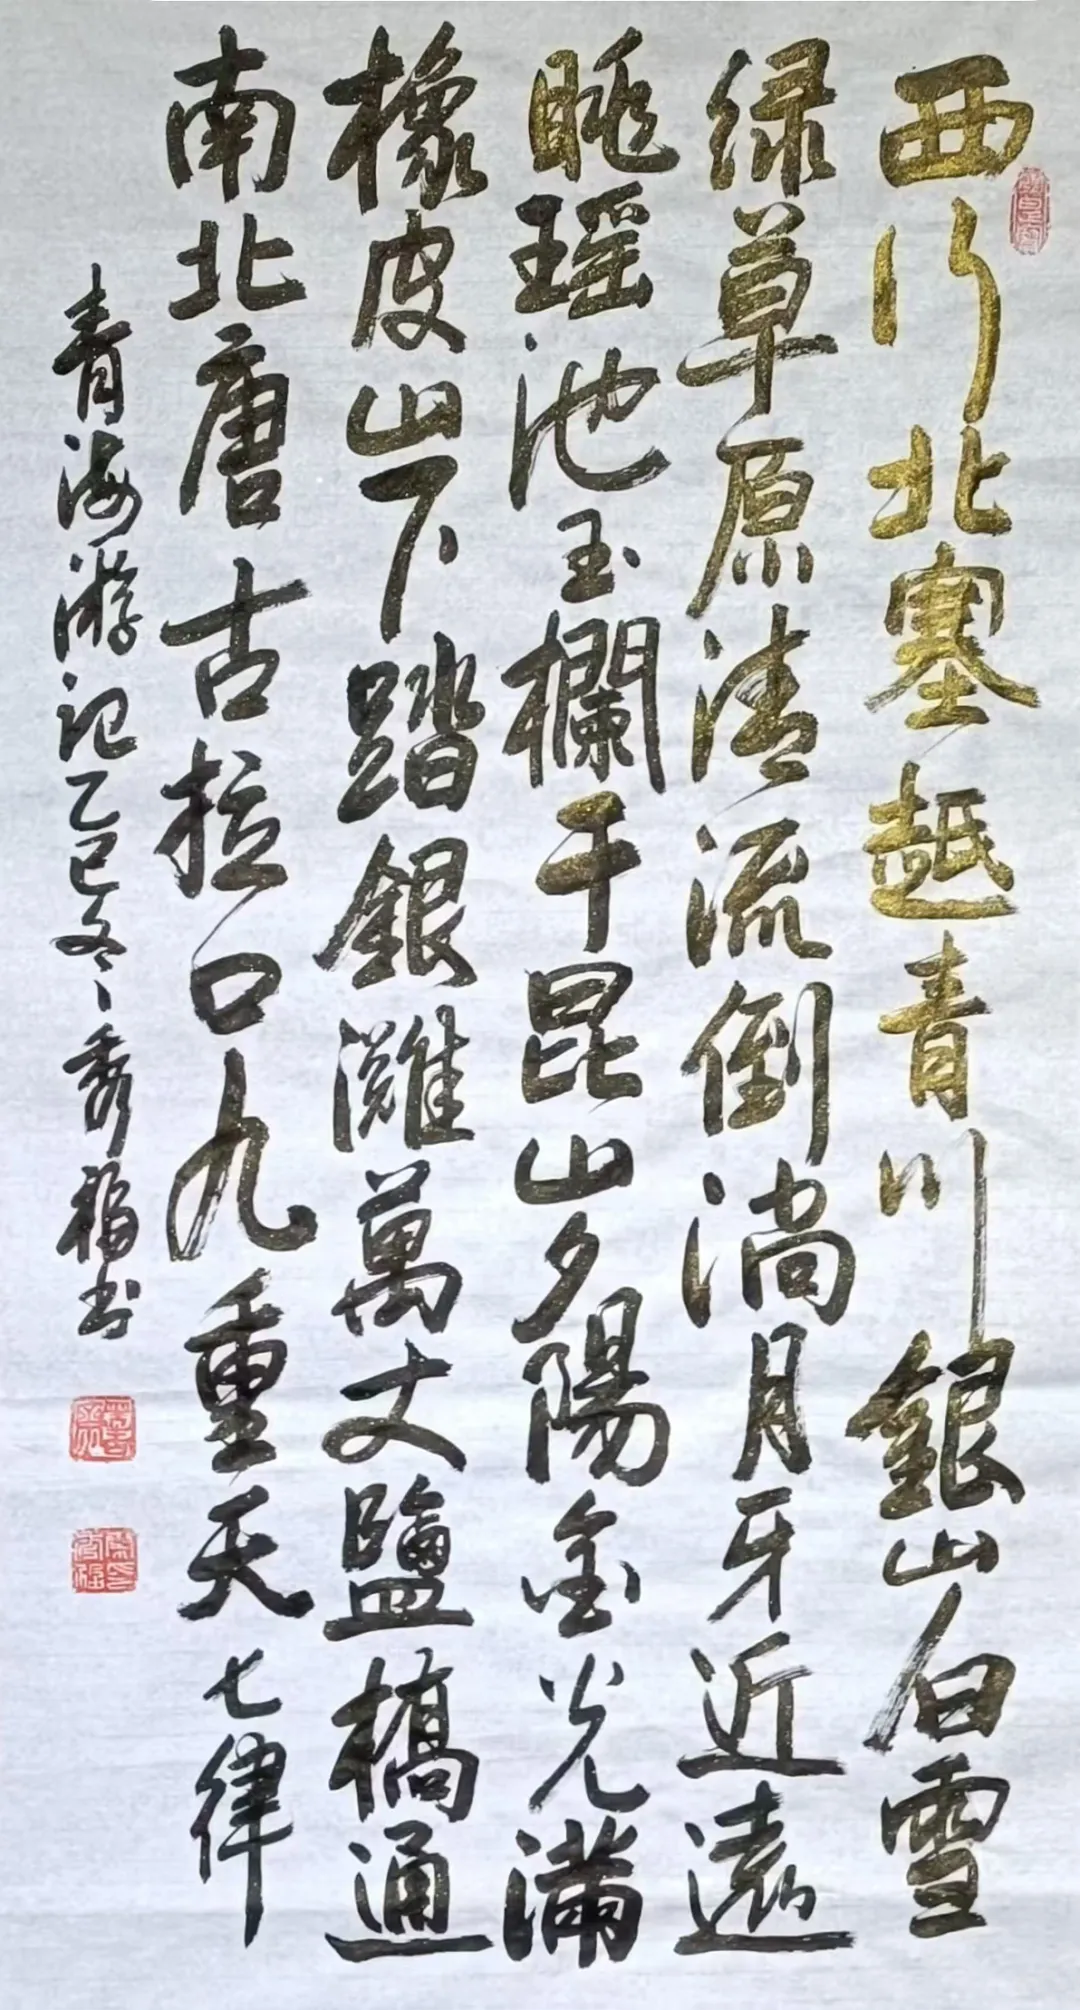 西行北塞越青川銀山白雪
绿草原清流倒淌月牙近遠
眺瑶池玉欄干昆山夕陽金光滿
橡皮山下踏銀灘萬丈鹽橋通
南北唐古拉口九重天七律
青海游记乙巳冬秀福书